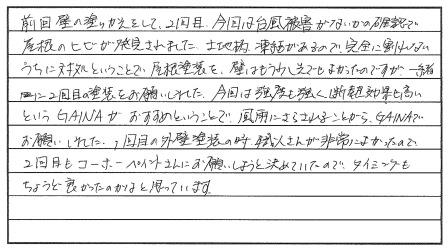 前回壁の塗りかえをして、2回目、今回は台風被害がないかの確認で
屋根のヒビが発見されました。土地柄、凍結があるので、完全に割れない
うちにということで、屋根塗装を、壁はもう少し先でもよかったのですが、一緒
に2回目の塗装をお願いしました。今回は強度も強く、断熱効果も高い
というGAINAがおすすめということで、風雨にさらされることから、GAINAで
お願いしました。1回目の外壁塗装の時、職人さんが非常によかったので
2回目もコーホーペイントさんにお願いしようと決めていたので、タイミングも
ちょうど良かったのかなと思っています